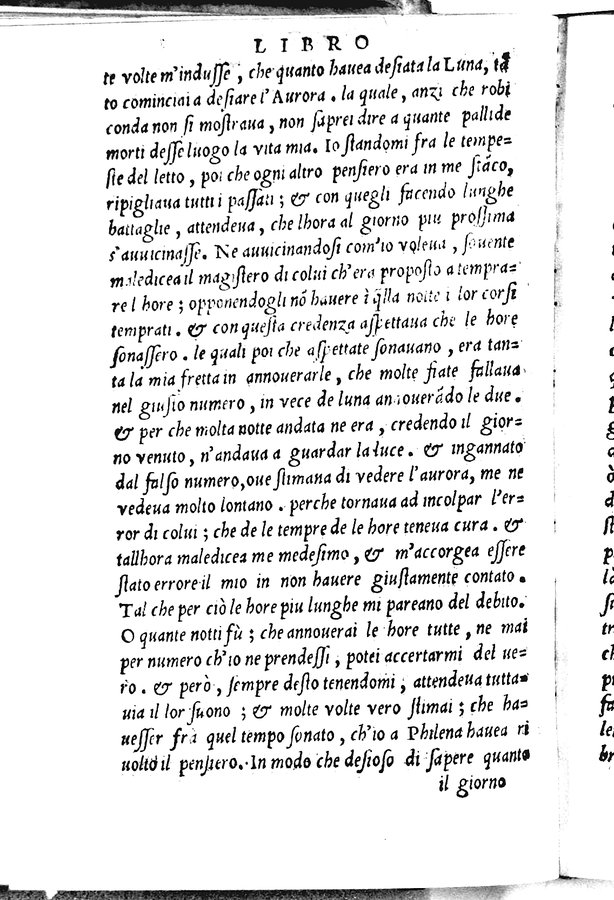 LIBRO
te volte m'indusse, che quanto hauea desiata la Luna, tã
to cominciai a desiare l'Aurora. la quale, anzi che robi
conda non si mostraua, non saprei dire a quante pallide
morti desse luogo la vita mia. Io standomi fra le tempe=
ste del letto, poi che ogni altro pensiero era in me stãco,
ripigliaua tutti i passati; & con quegli facendo lunghe
battaglie, attendeua, che lhora al giorno piu prossima
s'auuicinasse. Ne auuicinandosi com'io voleua, souente
maledicea il magistero di colui ch'era proposto a tempra=
re l hore; opponendogli nõ hauere ĩ q̃lla notte i lor corsi
temprati. & con questa credenza aspettaua che le hore
sonassero. le quali poi che aspettate sonauano, era tan=
ta la mia fretta in annouerarle, che molte fiate fallaua
nel giusto numero, in vece de luna annouerãdo le due.
& per che molta notte andata ne era, credendo il gior=
no venuto, n'andaua a guardar la luce. & ingannato
dal falso numero, oue stimana di vedere l'aurora, me ne
vedeua molto lontano. perche tornaua ad incolpar l'er=
ror di colui; che de le tempre de le hore teneua cura. &
tallhora maledicea me medesimo, & m'accorgea essere
stato errore il mio in non hauere giustamente contato.
Tal che per ciò le hore piu lunghe mi pareano del debito.
O quante notti fù; che annouerai le hore tutte, ne mai
per numero ch'io ne prendessi, potei accertarmi del ue=
ro. & però, sempre desto tenendomi, attendeua tutta=
uia il lor suono; & molte volte vero stimai; che ha=
uesser fra quel tempo sonato, ch'io a Philena hauea ri
uolto il pensiero. In modo che desioso di sapere quanto
il giorno